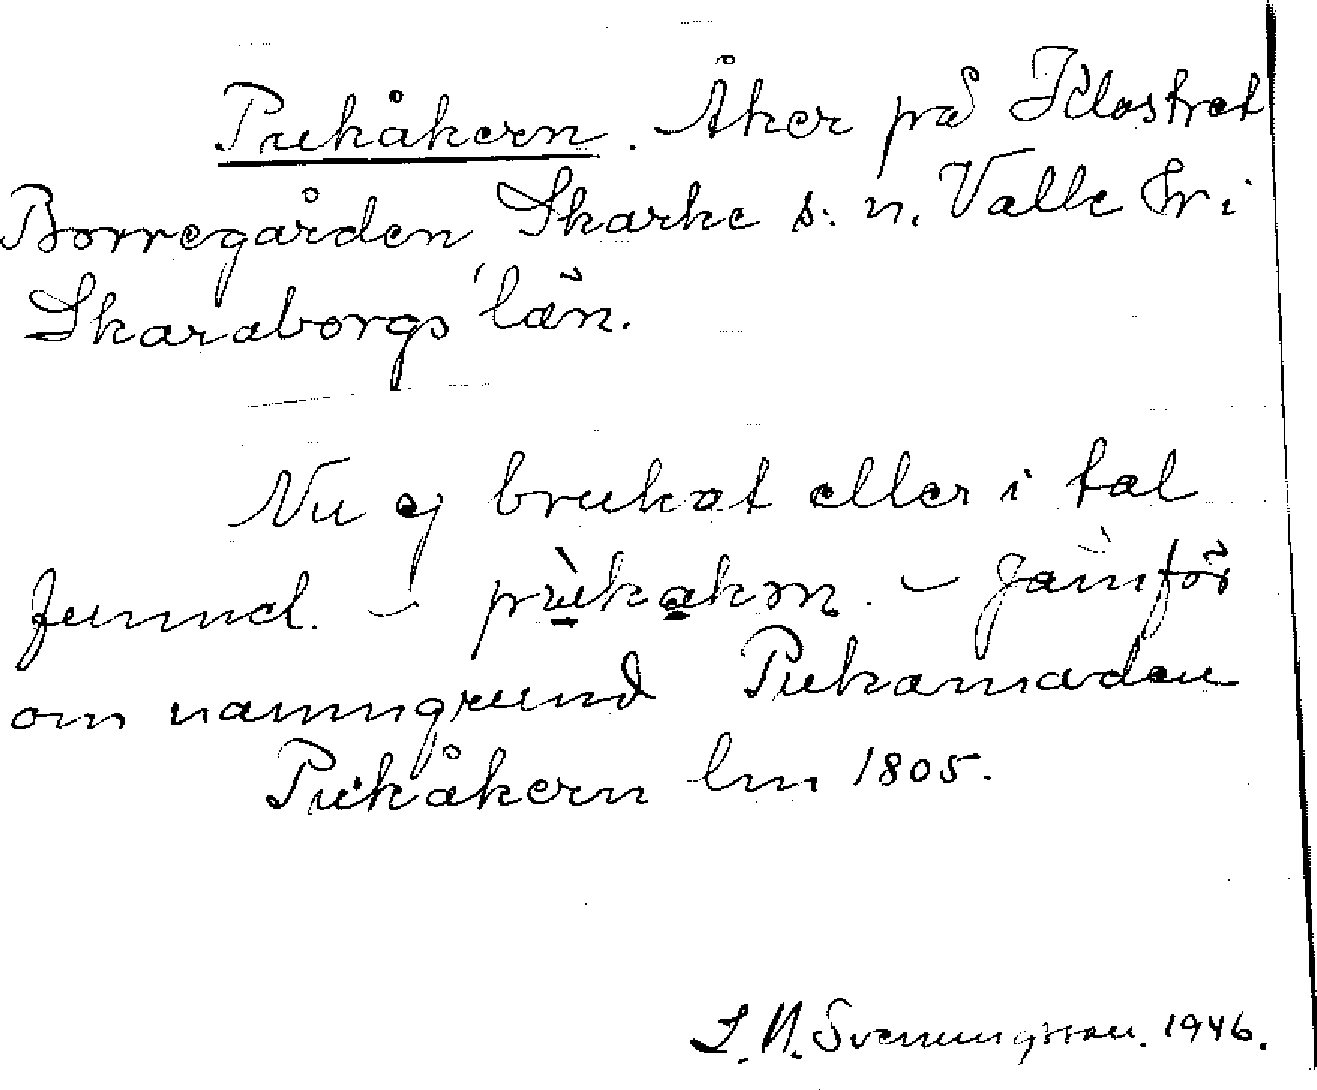 Pukåkern. Åker på Klostret
Borregården Skarke s:n. Valle Hr i
Skaraborgs län.
Nu ej brukat eller i tal
funnet. – – Jämför
om namngrund Pukamaden
Pukåkern Lm 1805.
S. A. Svenningsson. 1946.